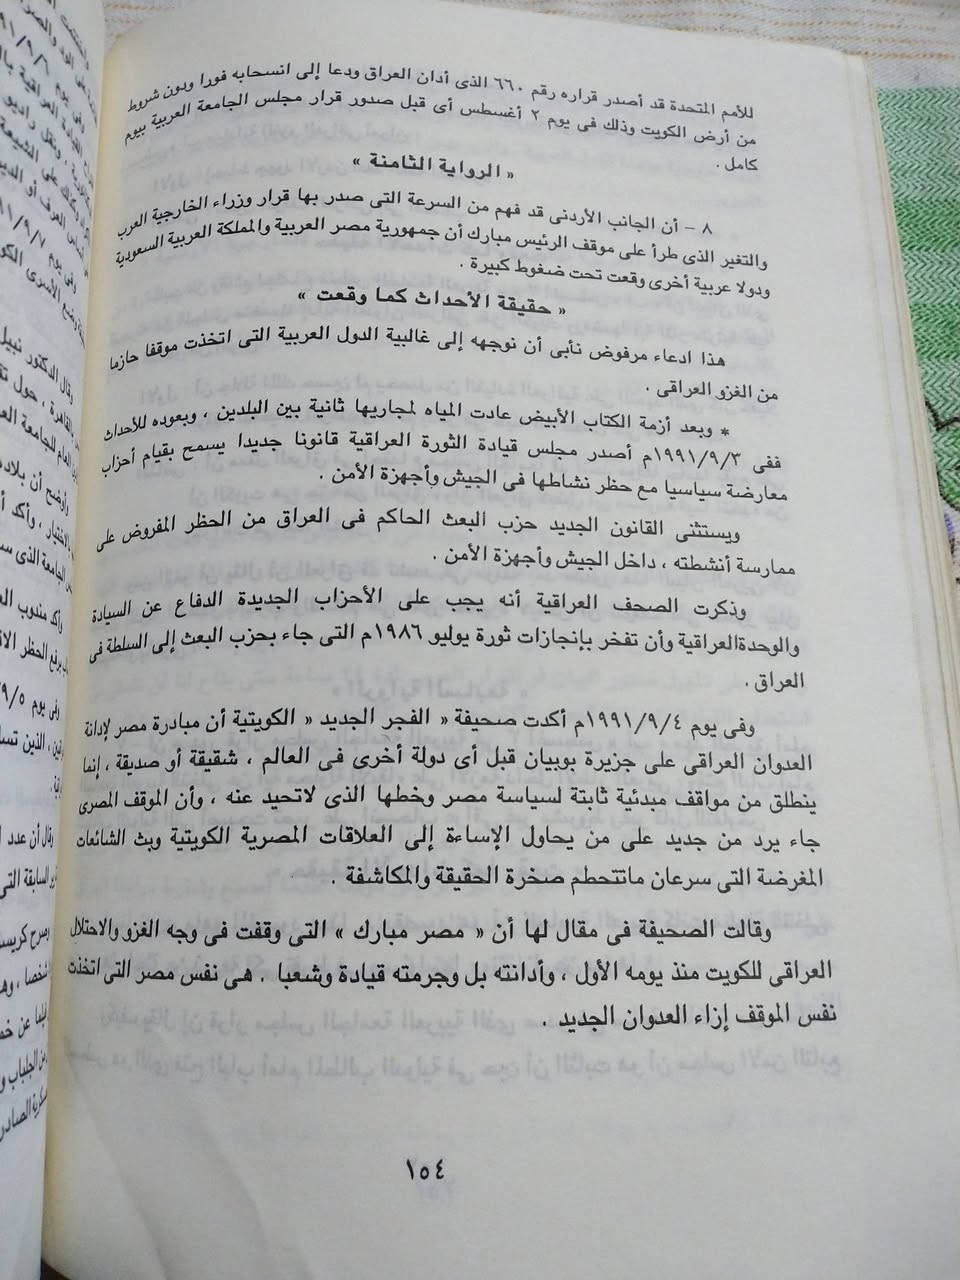 للأمم المتحدة قد أصدر قراره رقم ٦٦٠ الذى أدان العراق ودعا إلى انسحابه فورا ودون شروط
من أرض الكويت وذلك فى يوم ٢ أغسطس أى قبل صدور قرار مجلس الجامعة العربية بيوم
كامل .
« الرواية الثامنة »
٨ - أن الجانب الأردنى قد فهم من السرعة التى صدر بها قرار وزراء الخارجية العرب
والتغير الذى طرأ على موقف الرئيس مبارك أن جمهورية مصر العربية والمملكة العربية السعودية
ودولا عربية أخرى وقعت تحت ضغوط كبيرة .
« حقيقة الأحداث كما وقعت »
هذا ادعاء مرفوض نأبى أن نوجهه إلى غالبية الدول العربية التى اتخذت موقفا حازما
من الغزو العراقى .
* وبعد أزمة الكتاب الأبيض عادت المياه لمجاريها ثانية بين البلدين ، وبعوده للأحداث
ففى ١٩٩١/٩/٣م أصدر مجلس قيادة الثورة العراقية قانونا جديدا يسمح بقيام أحزاب
معارضة سياسيا مع حظر نشاطها فى الجيش وأجهزة الأمن .
ويستثنى القانون الجديد حزب البعث الحاكم فى العراق من الحظر المفروض على
ممارسة أنشطته ، داخل الجيش وأجهزة الأمن .
وذكرت الصحف العراقية أنه يجب على الأحزاب الجديدة الدفاع عن السيادة
والوحدةالعراقية وأن تفخر بإنجازات ثورة يوليو ١٩٨٦م التى جاء بحزب البعث إلى السلطة فى
العراق .
وفى يوم ١٩٩١/٩/٤م أكدت صحيفة « الفجر الجديد « الكويتية أن مبادرة مصر لإدانة
العدوان العراقى على جزيرة بوبيان قبل أى دولة أخرى فى العالم ، شقيقة أو صديقة ، إنما
ينطلق من مواقف مبدئية ثابتة لسياسة مصر وخطها الذى لاتحيد عنه ، وأن الموقف المصرى
جاء يرد من جديد على من يحاول الإساءة إلى العلاقات المصرية الكويتية وبث الشائعات
المغرضة التى سرعان ماتتحطم صخرة الحقيقة والمكاشفة .
وقالت الصحيفة فى مقال لها أن « مصر مبارك » التى وقفت فى وجه الغزو والاحتلال
العراقى للكويت منذ يومه الأول ، وأدانته بل وجرمته قيادة وشعبا . هى نفس مصر التى اتخذت
نفس الموقف إزاء العدوان الجديد .
١٥٤